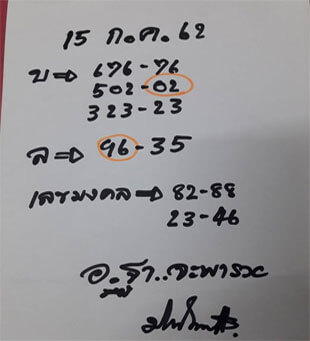 15 ก.ค. 62
บ⇒ 676-76
502-02
323-23
ล⇒ 96-35
เลขมงคล→ 82-88
23-46
อ.ฐา..จะพารวย